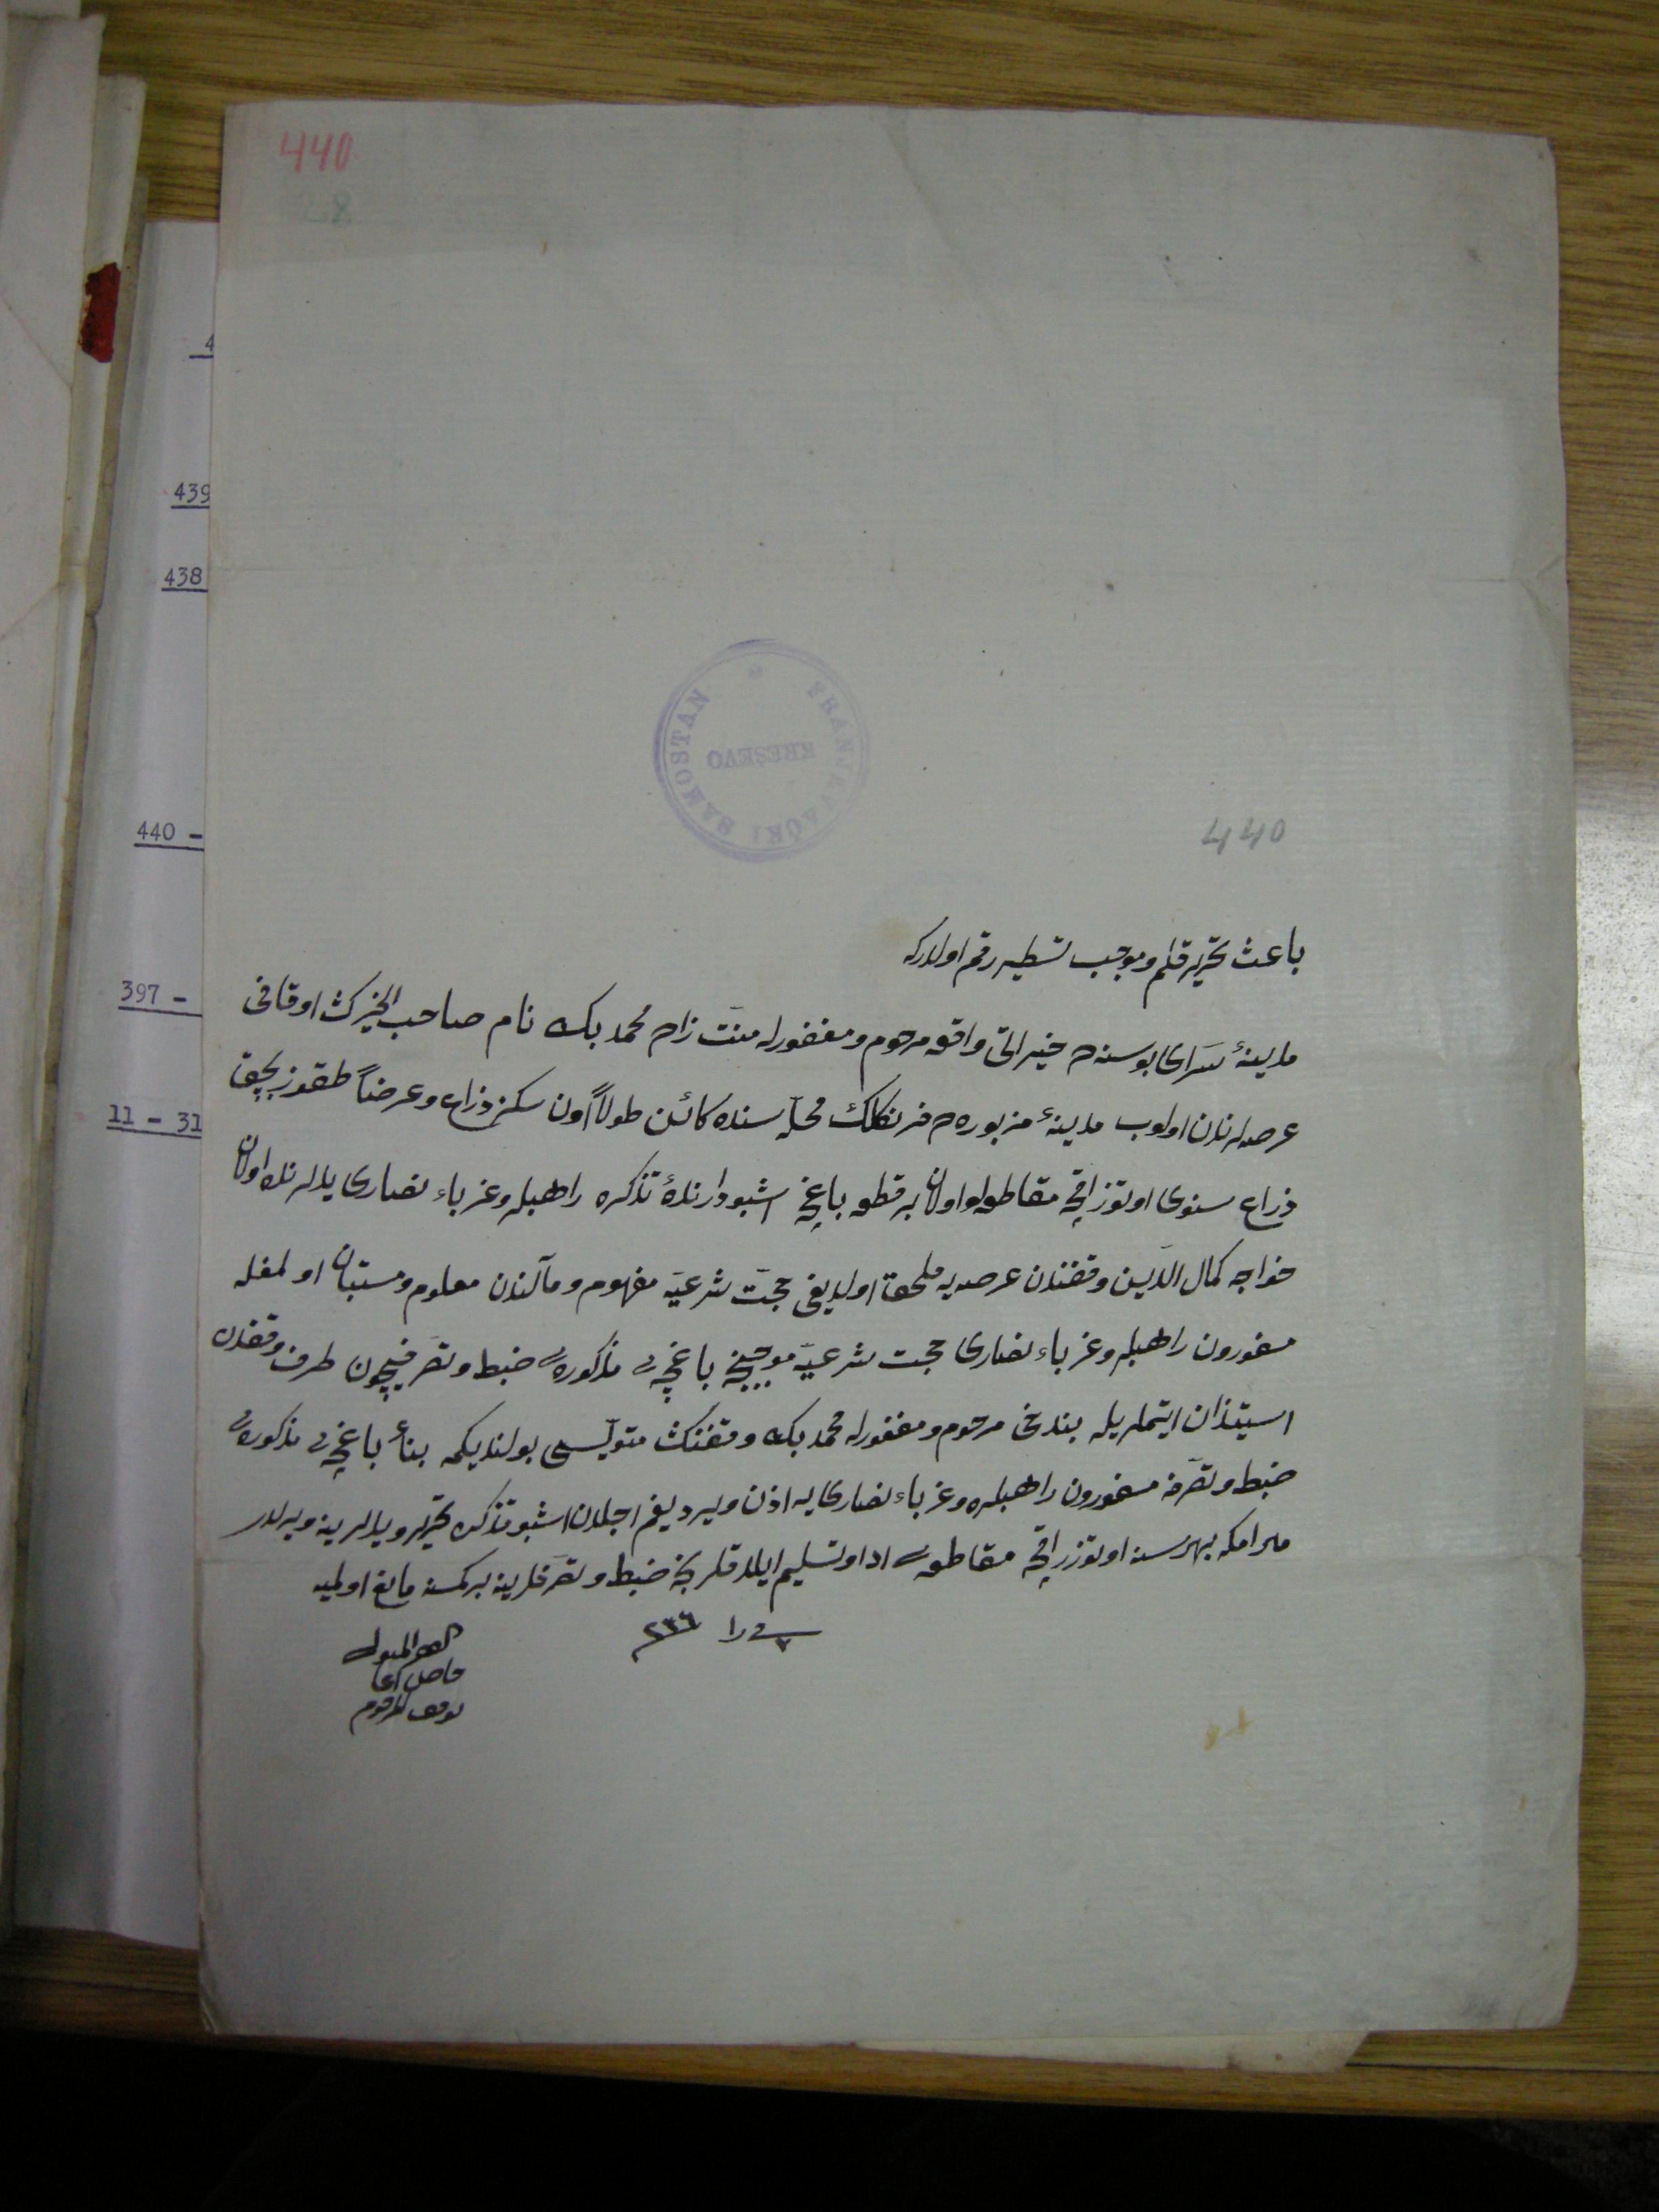 440
28
4
439
438
440 -
397 -
11 - 31
FRANJEVAČKI SAMOSTAN
KREŠEVO
440
باعث تحرير قلم وموجب تسطير رقم اولدركه
مدينۀ سراى بوسنه ده خيراتى واقع مرحوم ومغفورله منت زاده محمد بك نام صاحب الخيرك اوقافى
عرصه لرندن اولوب مدينۀ مزبوره ده فرنكلك محله سنده كائن طولاً اون سكز ذراع وعرضاً طقوز بچق
ذراع سنوى اوتوز اقچه مقاطعه لو اولان بر قطعه باغچه اشبو دارندۀ تذكره راهبلر وغرباء نصارى يدلرنده اولان
خواجه كمال الدين وقفندن عرصه يه ملحق اولديغى حجت شرعيه مفهوم ومآلندن معلوم ومستبان اولمغله
مسفورون راهبلر وغرباء نصارى حجت شرعيه موجبنجه باغچۀ مذكوره ى ضبط وتصرفيچون طرف وقفدن
استيذان ايتملريله بندخى مرحوم ومغفورله محمد بك وقفنك متوليسى بولنديكمه بناً باغچۀ مذكوره ى
ضبط وتصرفه مسفورون راهبلره وغرباء نصارى يه اذن ويرديكم اجلدن اشبو تذكره تحرير ويدلرينه ويرلدى
مادامكه بهر سنه اوتوز اقچه مقاطعه سى ادا وتسليم ايلدكلرنجه ضبط وتصرفلرينه بر كمسنه مانع اولميه
فى را ٢٣٦
المتولى